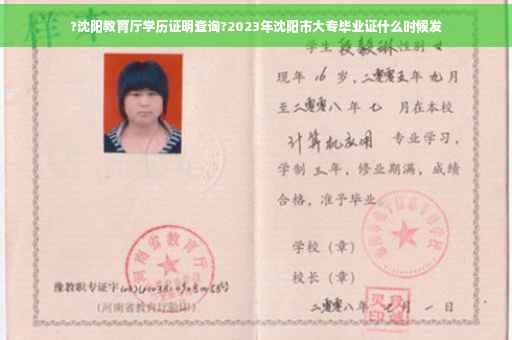 ?沈阳教育厅学历证明查询?2023年沈阳市大专毕业证什么时候发
样本
学生 段毅琳 性别 女
现年 16 岁，二零零五年 九月
至二零零八 年 七 月在本校
计算机应用 专业学习，
学制 三 年，修业期满，成绩
合格，准予毕业
学校（章）
校长（章）
二零零八年 月 一 日
河南省教育厅
豫教职专证字
（河南省教育厅验印）